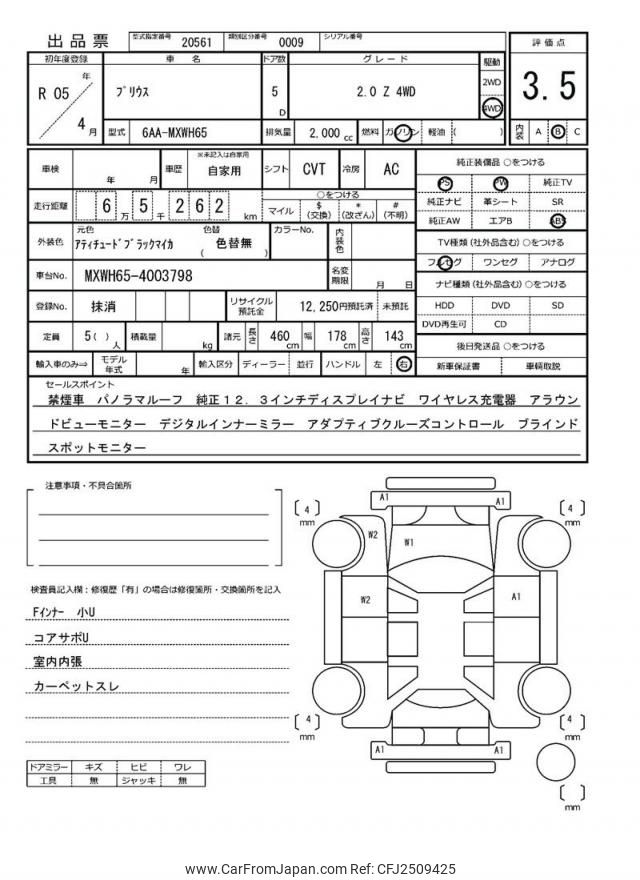 出品票
型式指定番号 20561 類別区分番号 0009 シリアル番号
初年度登録 車名 ドア数 グレード 駆動 評価点
R 05 年 4 月
プリウス 5 D 2.0 Z 4WD 2WD 4WD
3.5
型式 6AA-MXWH65 排気量 2,000 cc 燃料 ガソリン 軽油 ( ) 内装 A B C
車検 年 月 車歴 ※未記入は自家用 自家用 シフト CVT 冷房 AC
走行距離 6 万 5 千 2 6 2 km ○をつける
マイル $(交換) *(改ざん) #(不明)
外装色 元色 アティチュードブラックマイカ 色替 色替無 ( ) カラーNo. 内装色
車台No. MXWH65-4003798 名変期限 月 日
登録No. 抹消 リサイクル預託金 12,250円預託済 未預託
定員 5( ) 人 積載量 kg 諸元 長さ 460 cm 幅 178 cm 高さ 143 cm
輸入車のみ⇒ モデル年式 年 輸入区分 ディーラー 並行 ハンドル 左 右
純正装備品 ○をつける
PS PW 純正TV
純正ナビ 革シート SR
純正AW エアB ABS
TV種類 (社外品含む) ○をつける
フルセグ ワンセグ アナログ
ナビ種類 (社外品含む) ○をつける
HDD DVD SD
DVD再生可 CD
後日発送品 ○をつける
新車保証書 車輌取説
セールスポイント
禁煙車 パノラマルーフ 純正12.3インチディスプレイナビ ワイヤレス充電器 アラウン
ドビューモニター デジタルインナーミラー アダプティブクルーズコントロール ブラインド
スポットモニター
注意事項・不具合箇所
検査員記入欄：修復歴「有」の場合は修復箇所・交換箇所を記入
Fインナー 小U
コアサポU
室内内張
カーペットスレ
ドアミラー キズ ヒビ ワレ
工具 無 ジャッキ 無
A1 A1
4 mm 4 mm
W2 W1
W2 A1
4 mm 4 mm
A1 A1
mm
www.CarFromJapan.com Ref: CFJ2509425